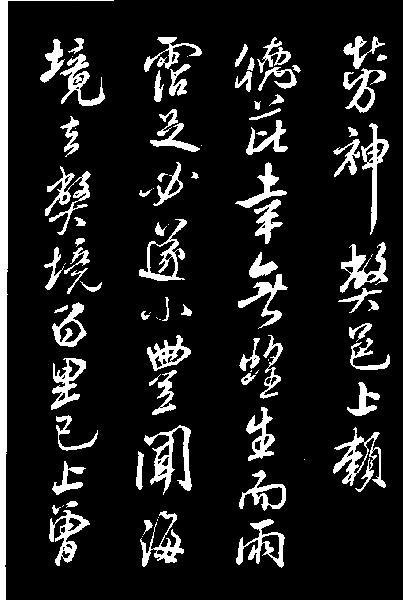 勞神弊邑上賴
德芘幸無蝗生而雨
霑足必遂小豐聞海
境去弊境百里已上曾